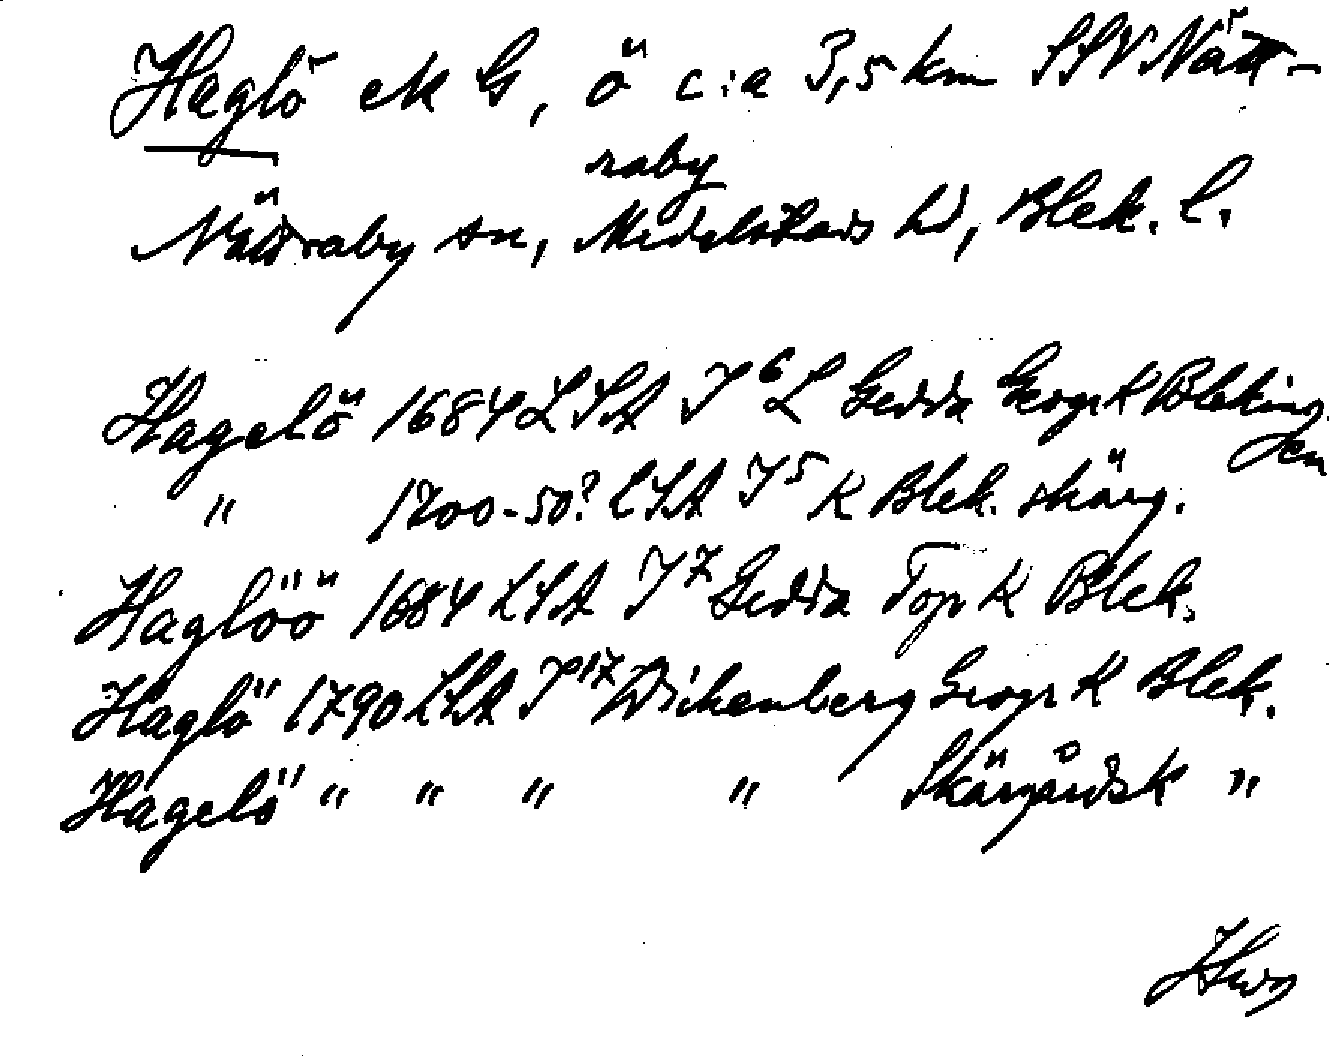 Haglö ek G, ö c:a 3,5 km SSV Nätt-
raby
Nättraby sn, Medelstads hd, Blek. l.
Hagelö 1684 LSA I⁶ L Gedda Geogr K Bleking
en
" 1700-50? LSA I⁵ K Blek. skärg.
Haglöö 1684 LSA I⁷ Gedda Top K Blek.
Haglö 1790 LSA I¹⁷ Wikenberg Geogr K Blek.
Hagelö " " " " Skärgårdsk "